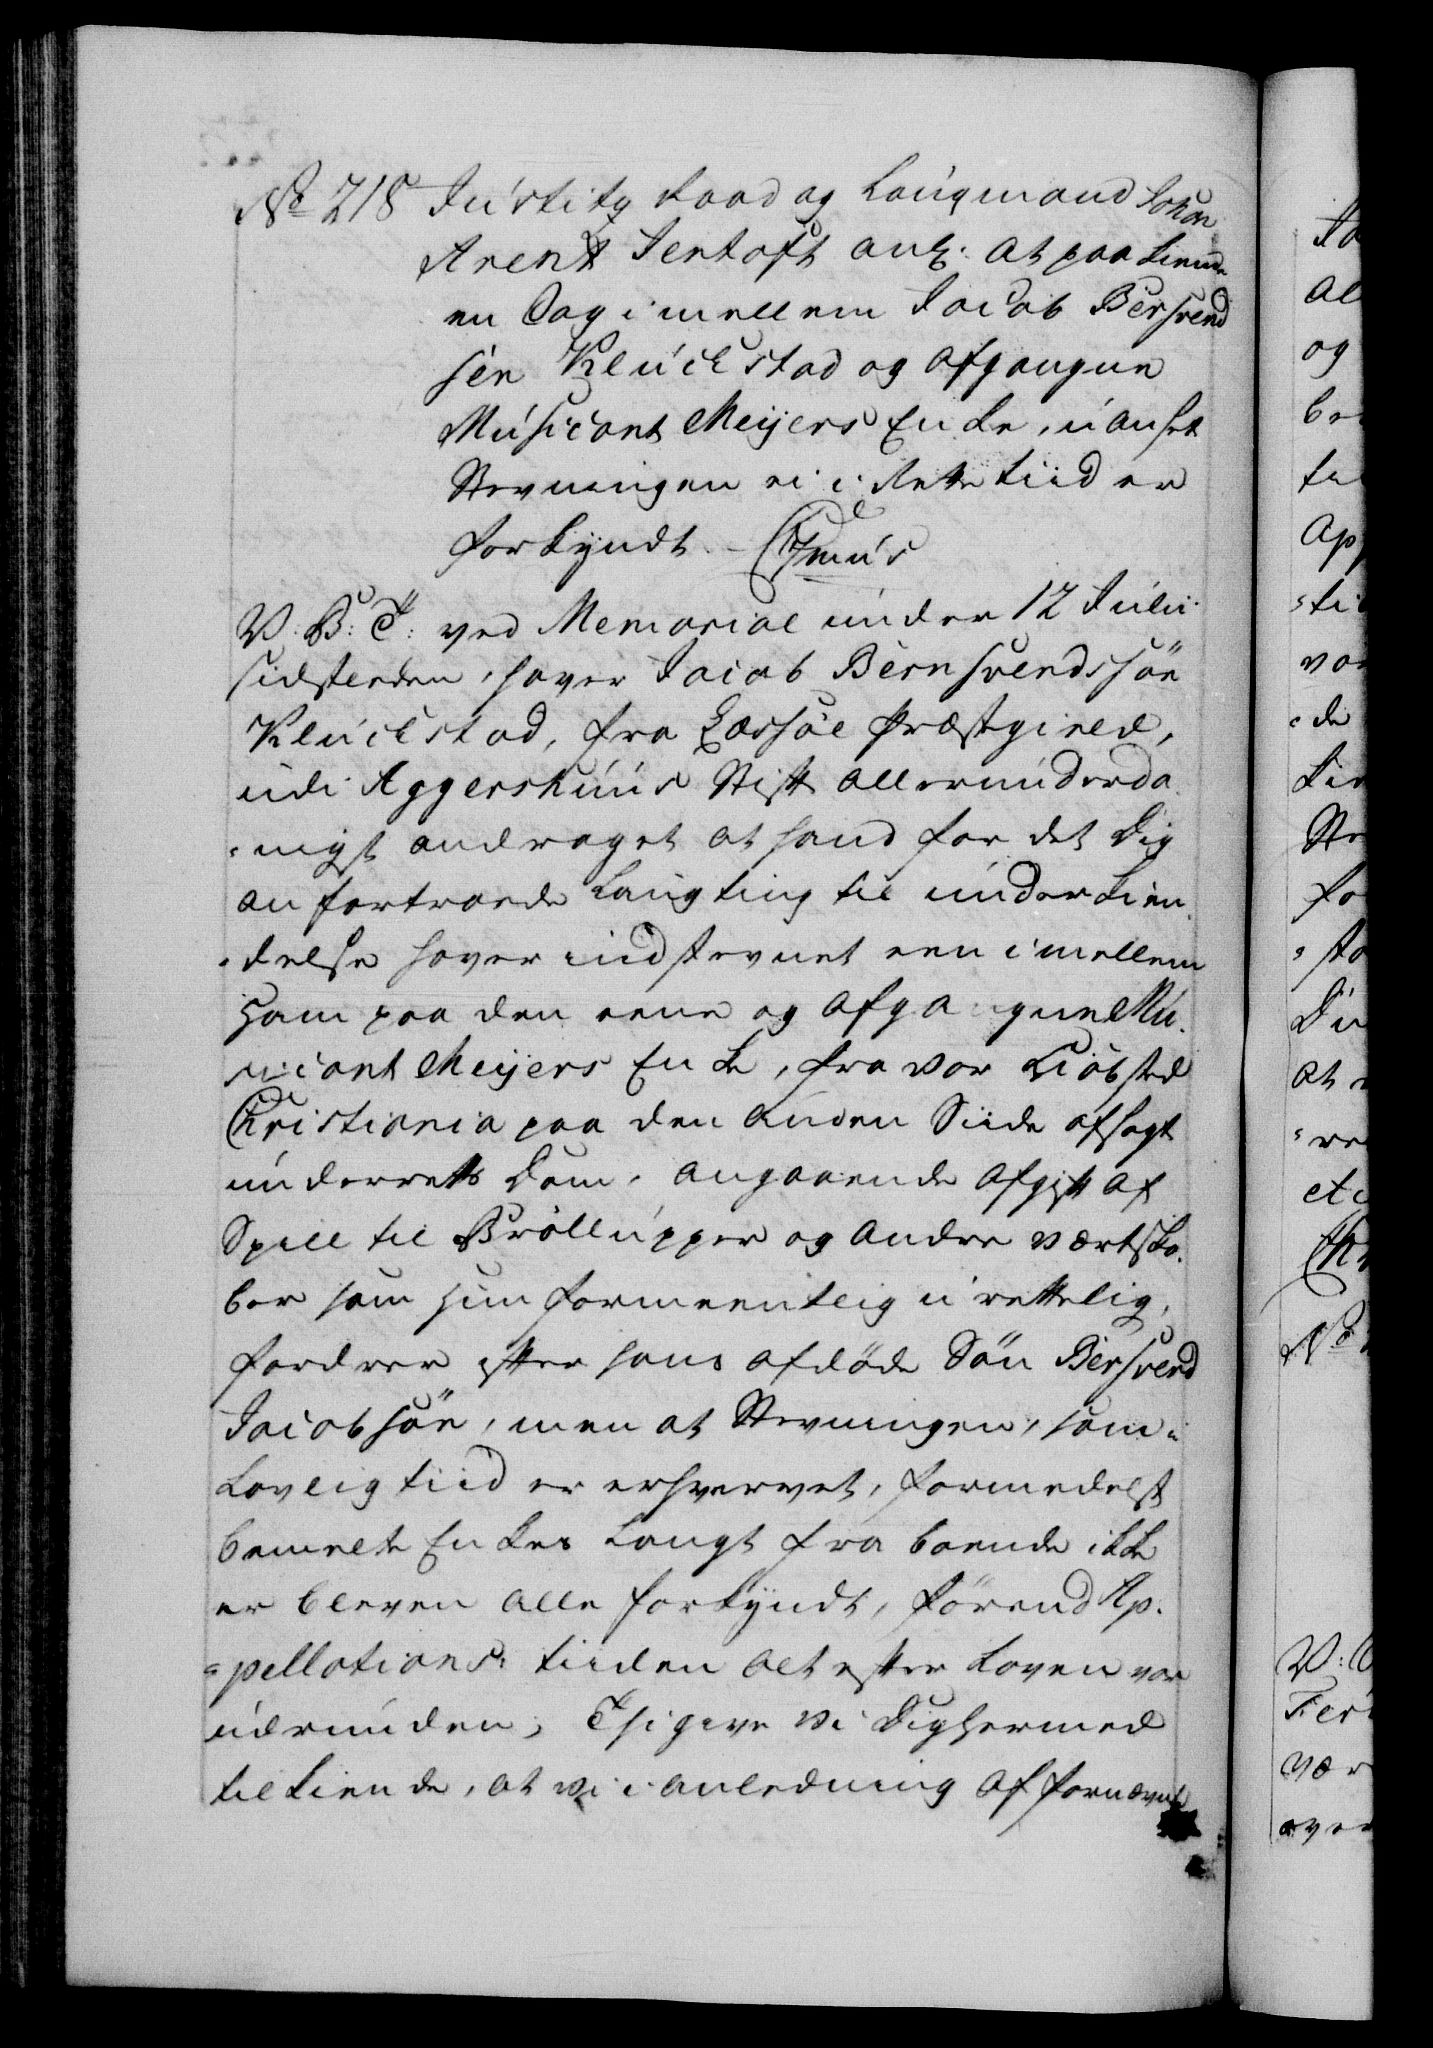 No 218 Justitz Raad og Laugmand Johan
Arent Sertoft anl: at paakiende
en Sag imellem Jacob Bersvend
sen Kluckstad og afgangne
Musicant Meijers Enke, uanset
Stevningen ei i rette tiid er
forkyndt. Gmus
V: B: T: ved Memorial under 12 Julii
sidstleden, haver Jacob Bernsvendssön
Kluckstad, fra Læssöe Præstgield,
udi Aggershuus Stift allerunderda
nigst andraget at hand for det Dig
anfortroede Laugting til underkien
delse haver indstevnet een imellem
ham paa den eene og afgangne Mu
sicant Meijers Enke, fra vor Kiöbsted
Christiania paa den anden Siide afsagt
underrets Dom, angaaende afgift af
Spill til Bröllupper og andre værtska
ber som hun formeentlig urettelig,
fordrer efter hans afdöde Sön Bersvend
Jacobsön, men at Stevningen, som i
Lovlig tiid er erhvervet, formedelst
bemelte Enkes langt fra boende ikke
er bleven alle forkyndt, förend Ap
pellations tiiden alt efter Loven var
udrunden; Thi give vi Dig hermed
tilkiende, at vi i anledning af fornævnte